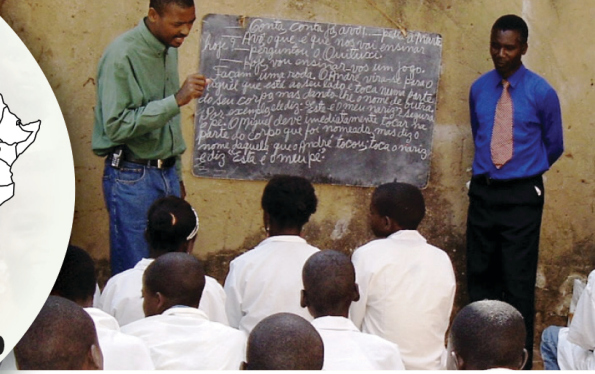 Conta conta já avó... pediu Marta
— Avó, o que é que nos vai ensinar
hoje? — perguntou o Quitucci
— Hoje vou ensinar-vos um jogo.
Façam uma roda. O André vira-se para o
Miguel que está ao seu lado e toca numa parte
do seu corpo mas dando-lhe o nome de outra
Por exemplo, ele diz: "Este é o meu nariz" e segura
o pé. O Miguel deve imediatamente tocar na
parte do corpo que foi nomeada, mas diz o
nome daquela que o André tocou; toca o nariz
e diz "Este é o meu pé".